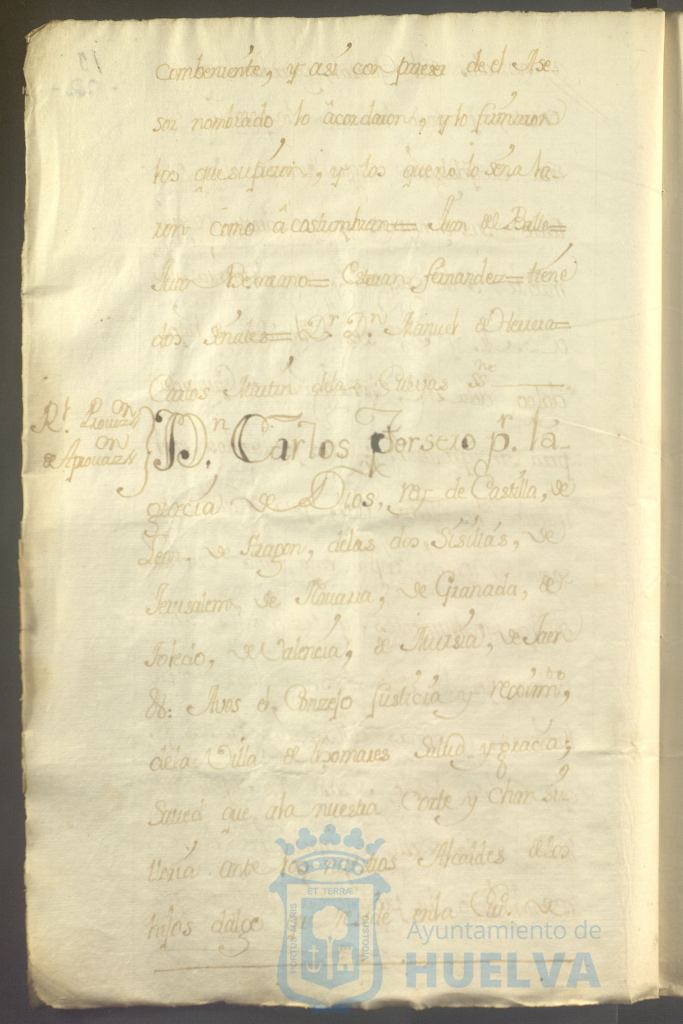 combeniente, y asi con pareser de el Ase-
sor nombrado lo âcordaron, y lo firmaron
los que supieron, y los que no lo señala-
ron como âcostumbran= Juan de
Juan = Estevan fernandez= tiene
dos señales= Dr. Dn. Manuel de Herrera=
Carlos Martin de las Cuevas SSno
Rl. Provizon
de Aprovazon
Dn. Carlos Tersero pr. la
gracia de Dios, rey de Castilla, de
Leon, de Aragon, delas dos Sisilias, de
Jerusalem, de Navarra, de Granada, de
Toledo, de Valencia, de Mursia, de Jaen
&: Avos el Conzejo Justicia y reximto,
dela Villa de thomares Salud y gracia;
Saved que ala nuestra Corte y Chansi-
lleria ante los nuestros Alcaldes delos
hijos dalgo enla de
Ayuntamiento de
HUELVA
PORTUS MARIS
ET TERRÆ
CUSTODIA